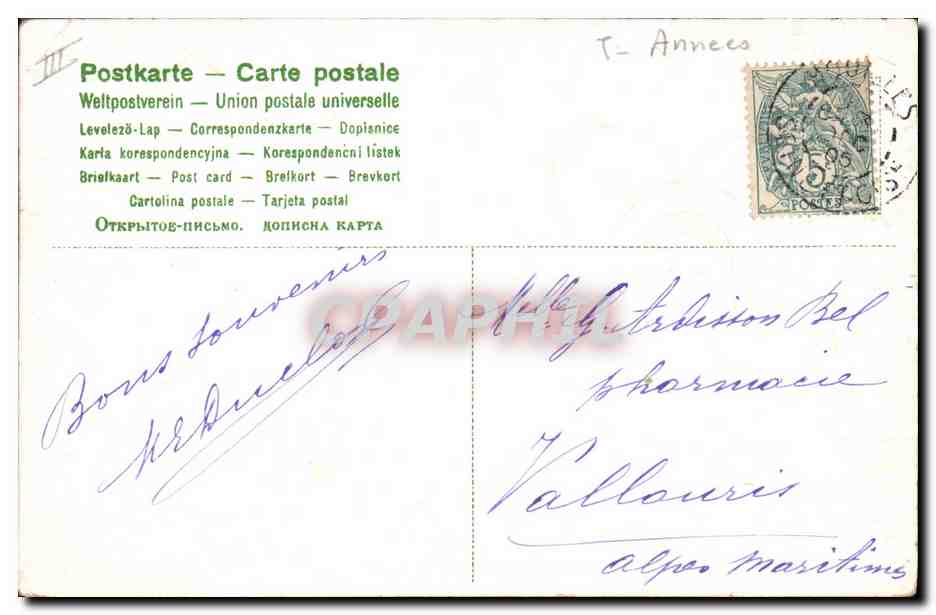 III
T- Annees
Postkarte — Carte postale
Weltpostverein — Union postale universelle
Levelező-Lap — Correspondenzkarte — Dopisnice
Karta korespondencyjna — Korespondencni listek
Briefkaart — Post card — Brefkort — Brevkort
Cartolina postale — Tarjeta postal
Открытое-письмо. дописна карта
5
POSTES
CPAPHIL
Bons souvenirs
Melle G. Ardisson Bel
pharmacie
Vallouris
alpes maritimes